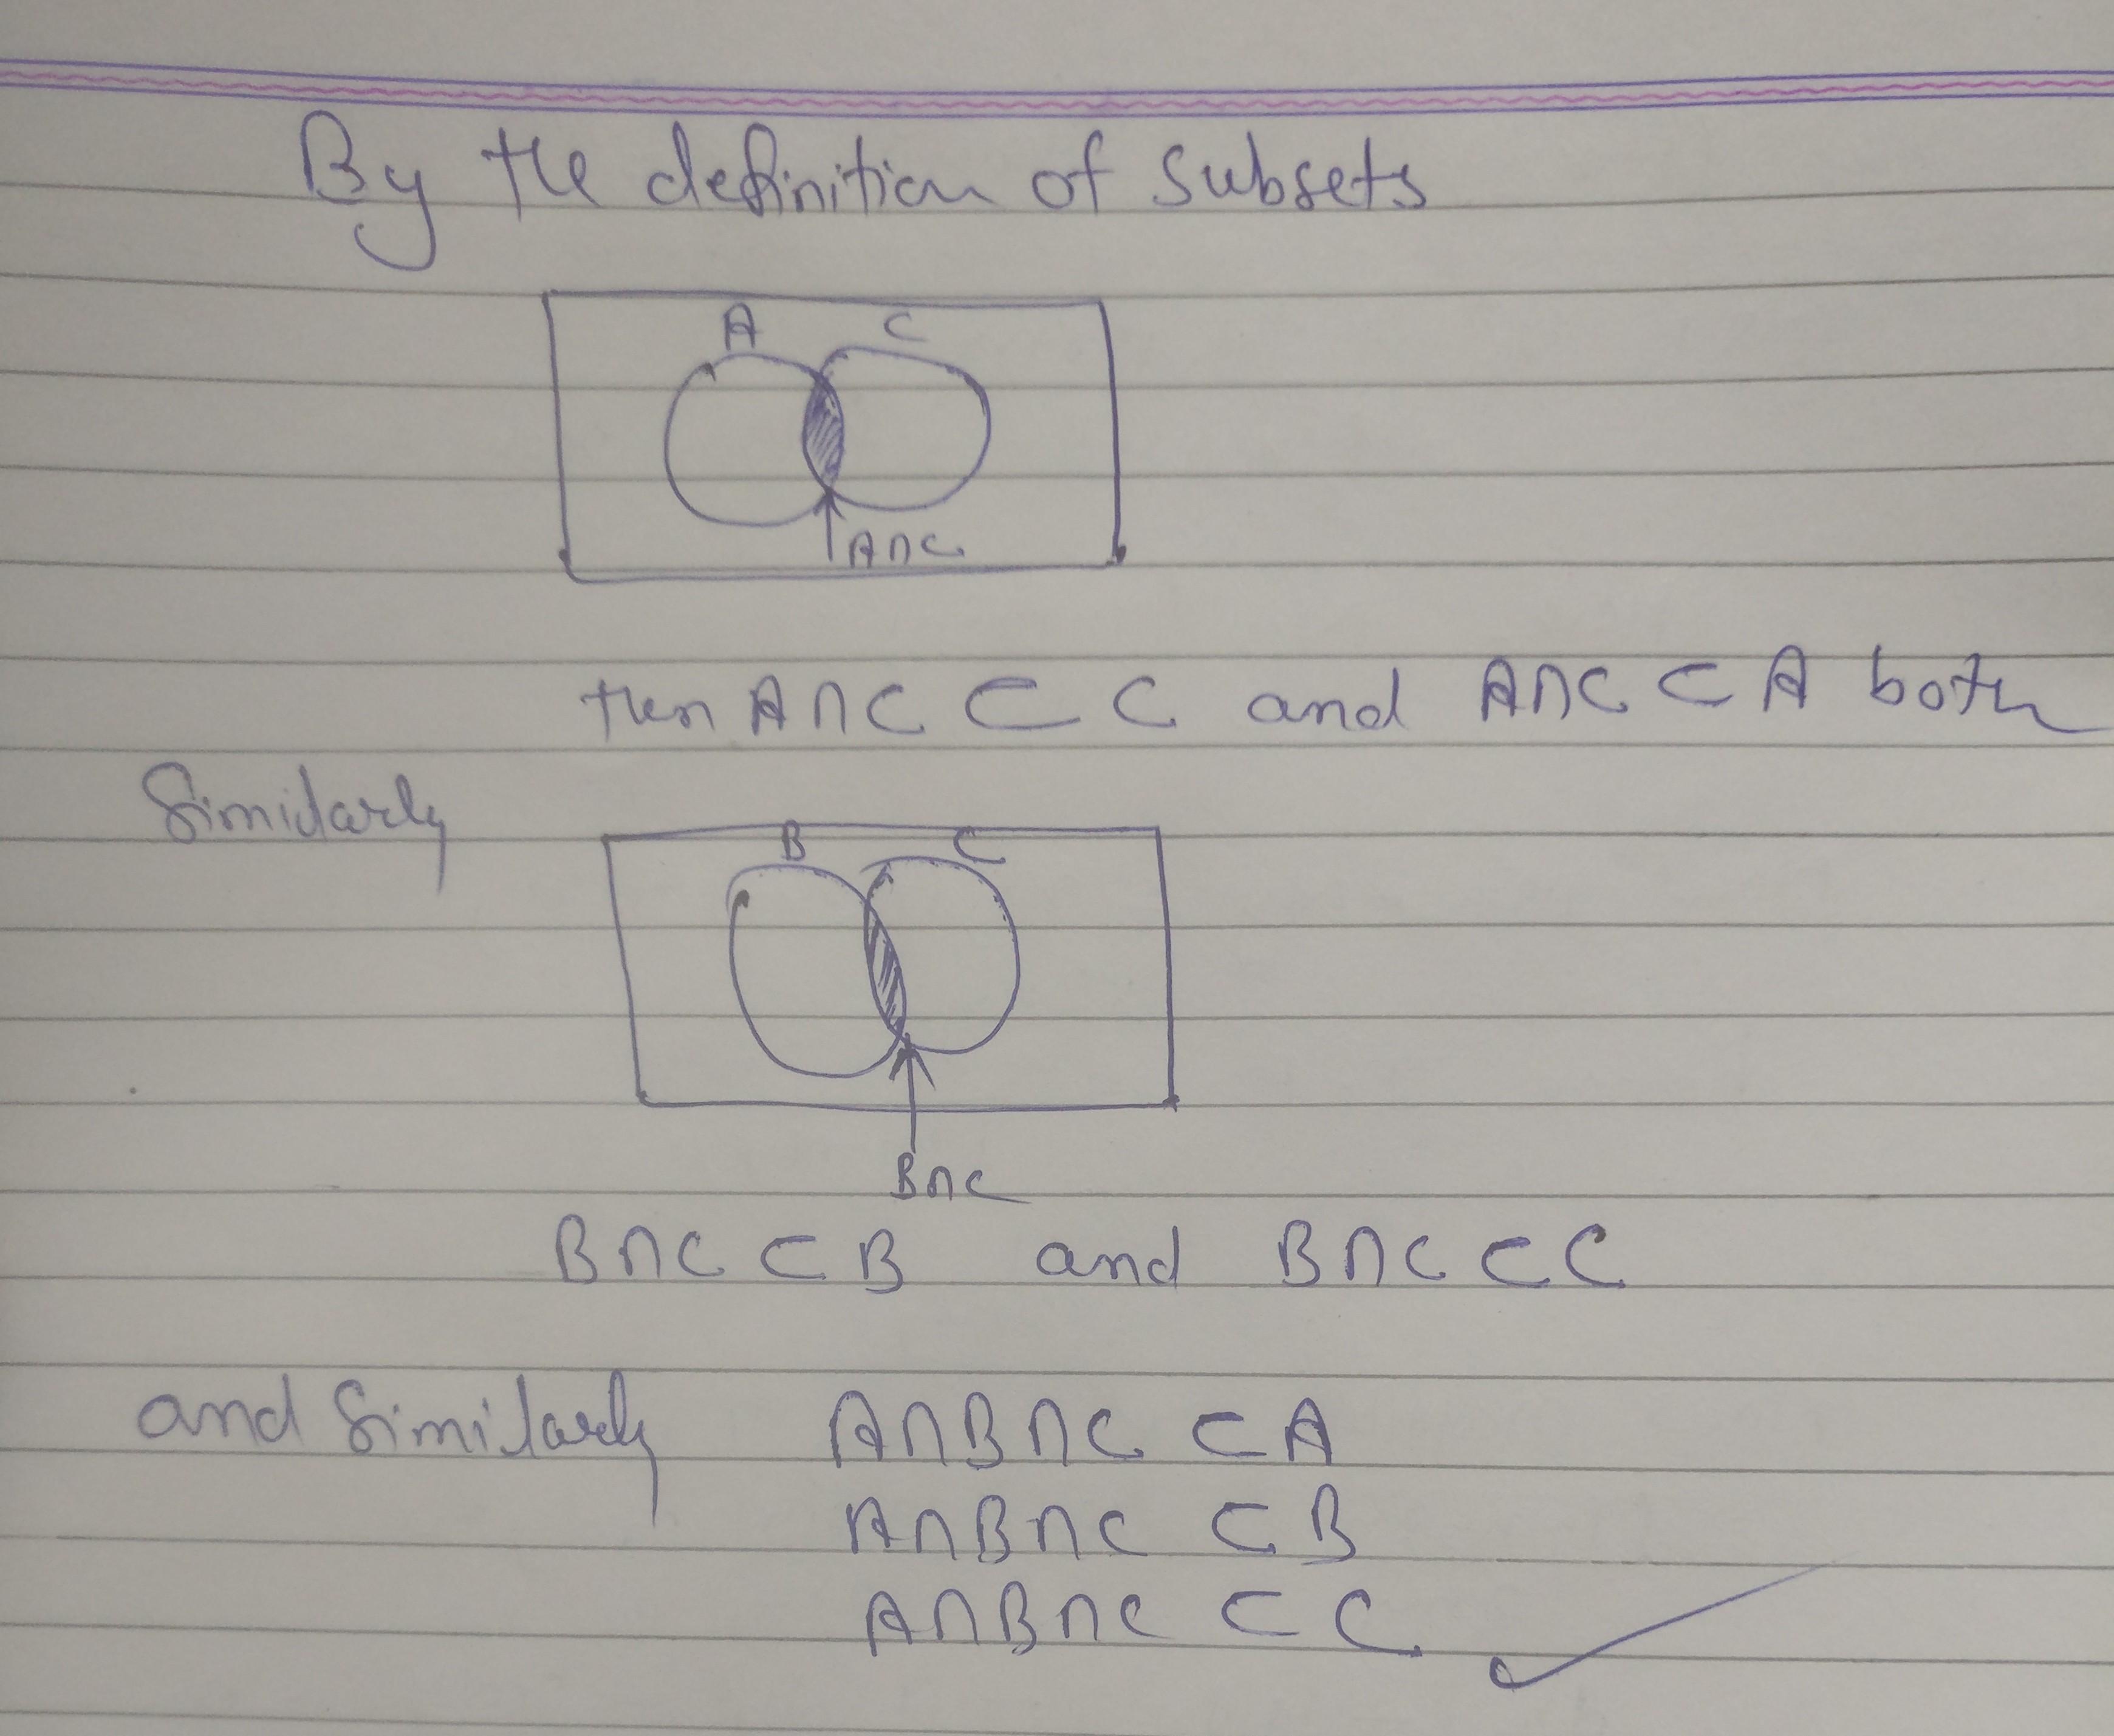 By the definition of subsets
A C
A∩C
then A∩C ⊂ C and A∩C ⊂ A both
Similarly
B C
B∩C
B∩C ⊂ B and B∩C ⊂ C
and Similarly A∩B∩C ⊂ A
A∩B∩C ⊂ B
A∩B∩C ⊂ C